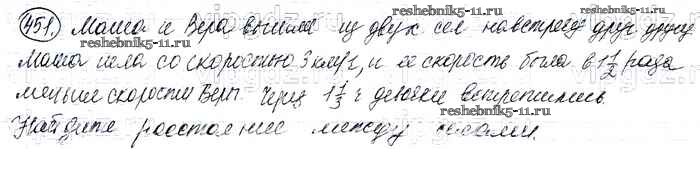 reshebnik5-11.ru
451. Маша и Вера вышли из двух сел навстречу друг другу
Маша шла со скоростью 3 км/ч, и ее скорость была в 1 1/2 раза
меньше скорости Веры. Через 1 1/3 ч девочки встретились.
Найдите расстояние между селами.
reshebnik5-11.ru